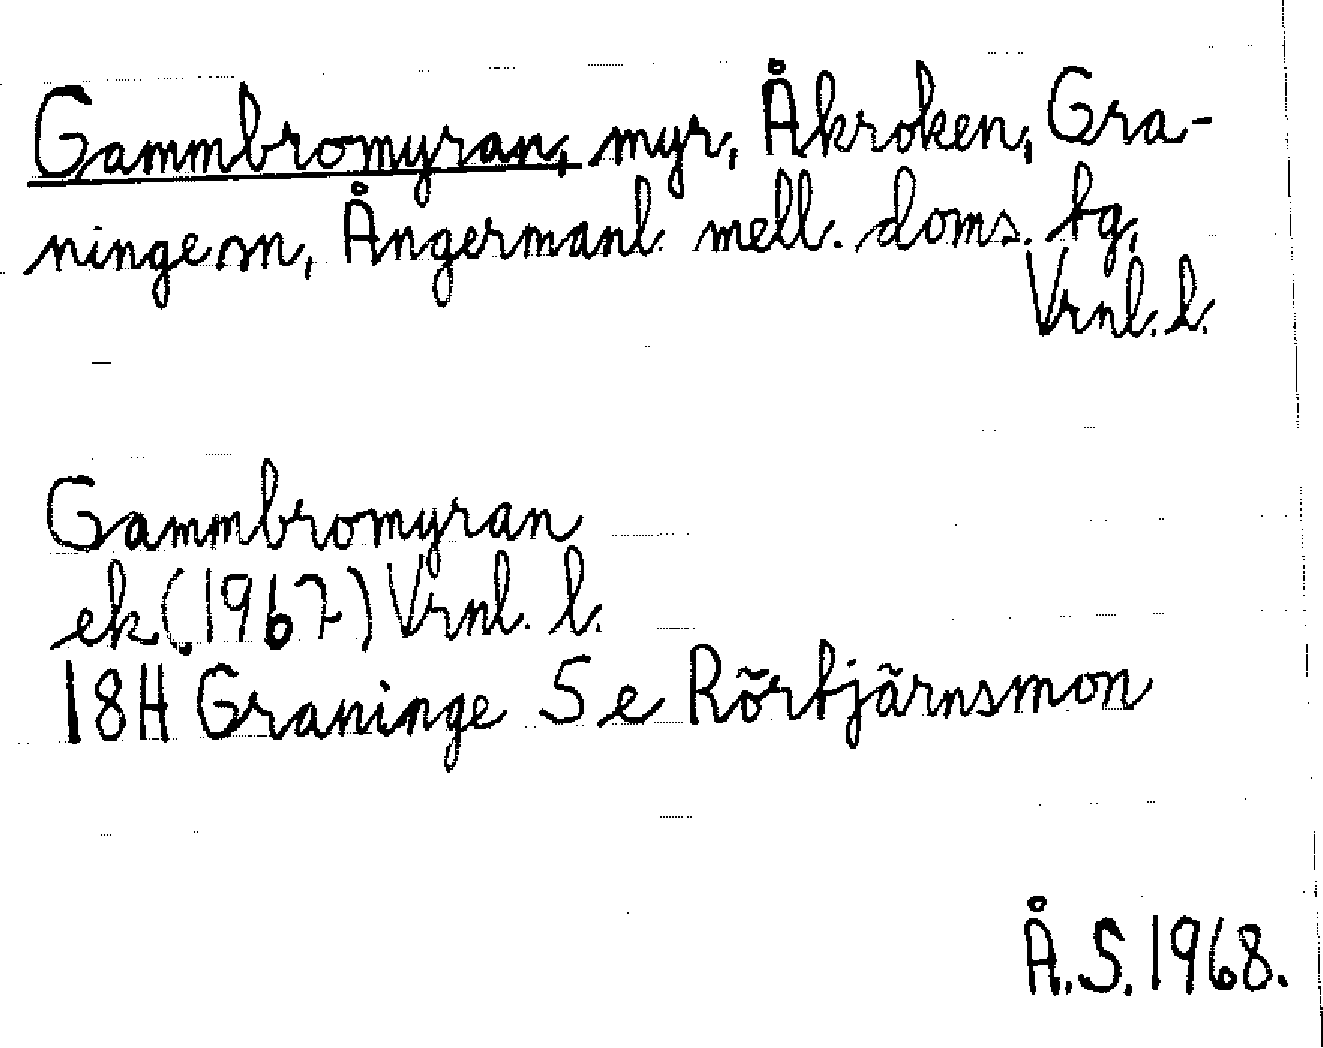 Gammbromyran, myr, Åkroken, Gra-
ninge sn, Ångermanl. mell. doms. tg.
Vrnl. l.
Gammbromyran
ek (1967) Vrnl. l.
18H Graninge 5 e Rörtjärnsmon
Å.S. 1968.